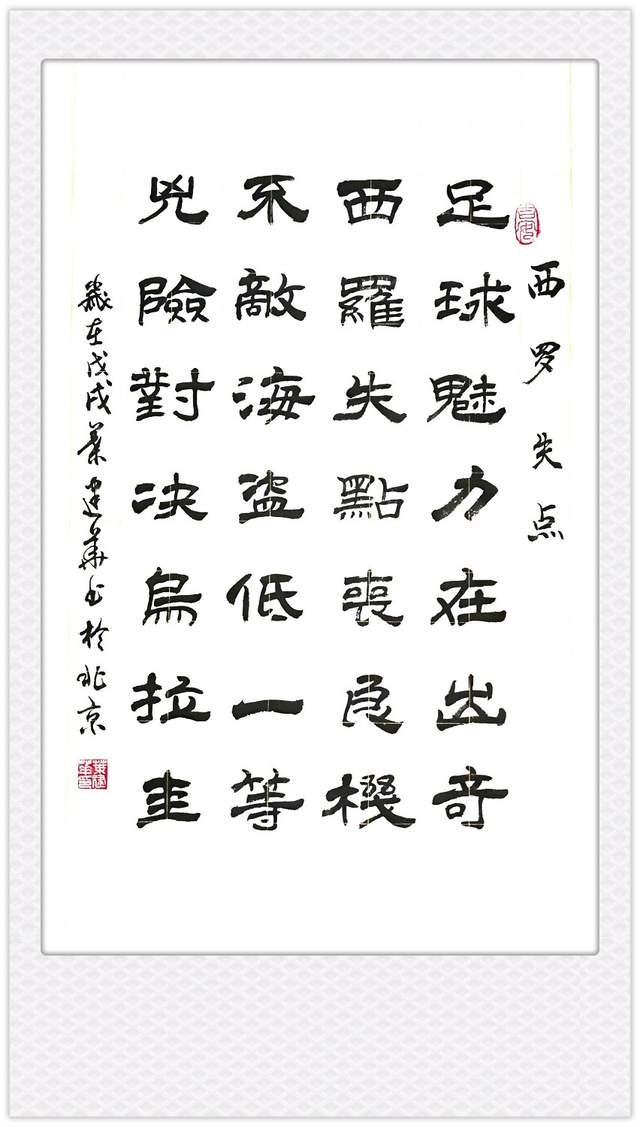 西罗失点
足球魅力在出奇
西羅失點喪良機
不敵海盗低一等
兇險對决烏拉圭
歲在戊戌葉建華书於北京